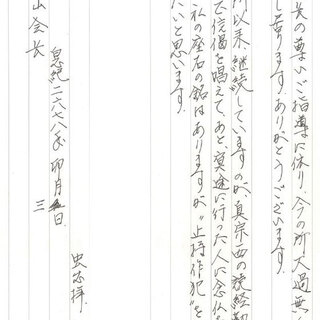 長の尊いご指導に依り、今の所大過無く
し居ります。ありがとうございます。
所以来、継続していますのが、真宗西の読経勤
で偈を唱えて、あと、冥途に行った人に念仏を
私の座右の銘はありますが〝止持作犯〟を
たいと思います。
忠志拝
皇紀二六七八年 卯月 三日
山会長